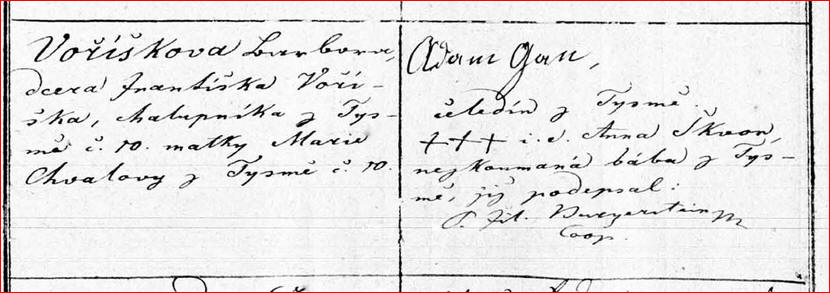 Voříškova Barbora,
dcera Františka Voří-
ška, chalupníka z Tys-
mě č. 10. matky Marie
Chvalovy z Tysmě č. 10.
Adam Jan,
čeledín z Tysmě.
+++ i. d. Anna Škvon,
nezkoumaná bába z Tys-
mě, jíž podepsal:
P. Fil. Burgerstein
Coop.